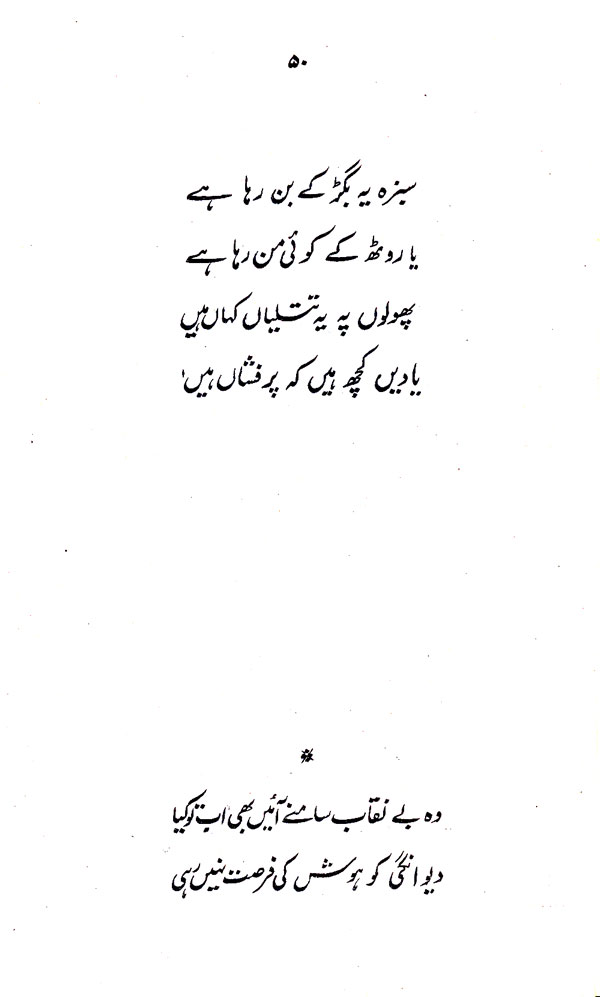 ۵۰
سبزہ یہ بگڑ کے بن رہا ہے
یا روٹھ کے کوئی من رہا ہے
پھولوں پہ یہ تتلیاں کہاں ہیں
یادیں کچھ ہیں کہ پر فشاں ہیں!
وہ بے نقاب سامنے آئیں بھی اب تو کیا
دیوانگی کو ہوش کی فرصت نہیں رہی